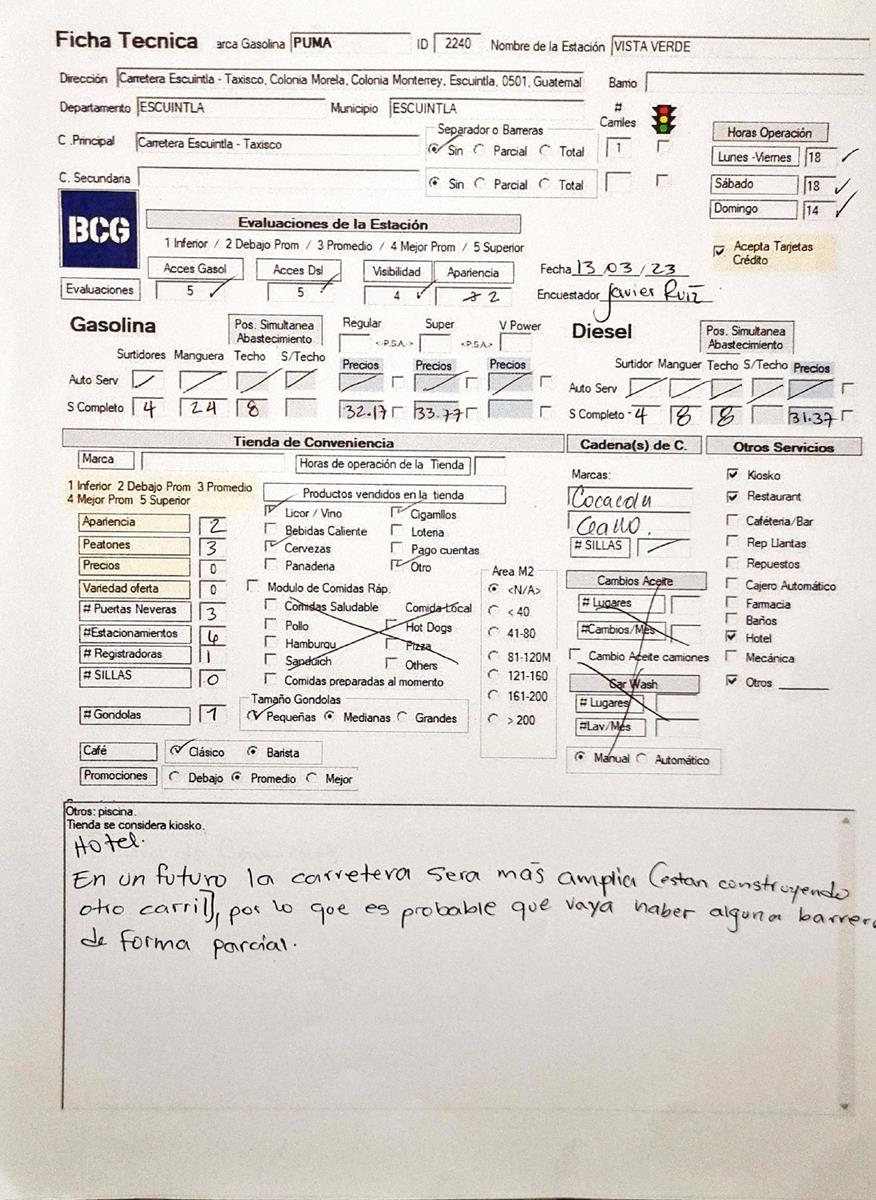 Ficha Tecnica arca Gasolina PUMA ID 2240 Nombre de la Estación VISTA VERDE
Dirección Carretera Escuintla - Taxisco, Colonia Morela, Colonia Monterrey, Escuintla, 0501, Guatemal Barrio
Departamento ESCUINTLA Municipio ESCUINTLA # Carriles
C .Principal Carretera Escuintla - Taxisco Separador o Barreras Sin Parcial Total 1
C. Secundaria Sin Parcial Total
Horas Operación
Lunes -Viernes 18
Sábado 18
Domingo 14
BCG
Evaluaciones de la Estación
1 Inferior / 2 Debajo Prom / 3 Promedio / 4 Mejor Prom / 5 Superior
Acepta Tarjetas
Crédito
Acces Gasol Acces Dsl Visibilidad Apariencia
Evaluaciones 5 5 4 2
Fecha 13/03/23
Encuestador Javier Ruiz
Gasolina Pos. Simultanea Abastecimiento Regular <-P.S.A.-> Super <-P.S.A.-> V Power
Surtidores Manguera Techo S/Techo Precios Precios Precios
Auto Serv
S Completo 4 24 8 32.17 33.77
Diesel Pos. Simultanea Abastecimiento
Surtidor Manguer Techo S/Techo Precios
Auto Serv
S Completo 4 8 8 31.37
Tienda de Conveniencia
Marca Horas de operación de la Tienda
1 Inferior 2 Debajo Prom 3 Promedio
4 Mejor Prom 5 Superior
Apariencia 2
Peatones 3
Precios 0
Variedad oferta 0
# Puertas Neveras 3
#Estacionamientos 6
# Registradoras 1
# SILLAS 0
# Gondolas 7
Productos vendidos en la tienda
Licor / Vino Cigarrillos
Bebidas Caliente Loteria
Cervezas Pago cuentas
Panaderia Otro
Modulo de Comidas Ráp.
Comidas Saludable Comida Local
Pollo Hot Dogs
Hamburgu Pizza
Sanduich Others
Comidas preparadas al momento
Tamaño Gondolas
Pequeñas Medianas Grandes
Area M2
<N/A>
< 40
41-80
81-120M
121-160
161-200
> 200
Café Clásico Barista
Promociones Debajo Promedio Mejor
Cadena(s) de C.
Marcas:
# SILLAS
Cambios Aceite
# Lugares
#Cambios/Mes
Cambio Aceite camiones
Car Wash
# Lugares
#Lav/Mes
Manual Automático
Otros Servicios
Kiosko
Restaurant
Caféteria/Bar
Rep Llantas
Repuestos
Cajero Automático
Farmacia
Baños
Hotel
Mecánica
Otros
Otros: piscina.
Tienda se considera kiosko.
Hotel.
En un futuro la carretera sera más amplia (estan construyendo
otro carril), por lo que es probable que vaya haber alguna barrera
de forma parcial.